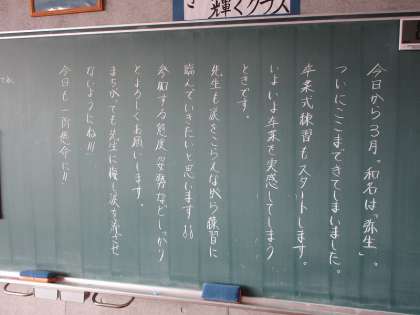 輝くクラス
今日から3月。和名は「弥生」。
ついにここまできてしまいました。
卒業式練習もスタートします。
いよいよ卒業を実感してしまう
ときです。
先生も涙をこらえながら練習に
臨んでいきたいと思います。
参加する態度や姿勢などしっかり
とよろしくお願いします。
まちがっても先生に優し涙を流させ
ないようにね!!!
今日も一所懸命に!!